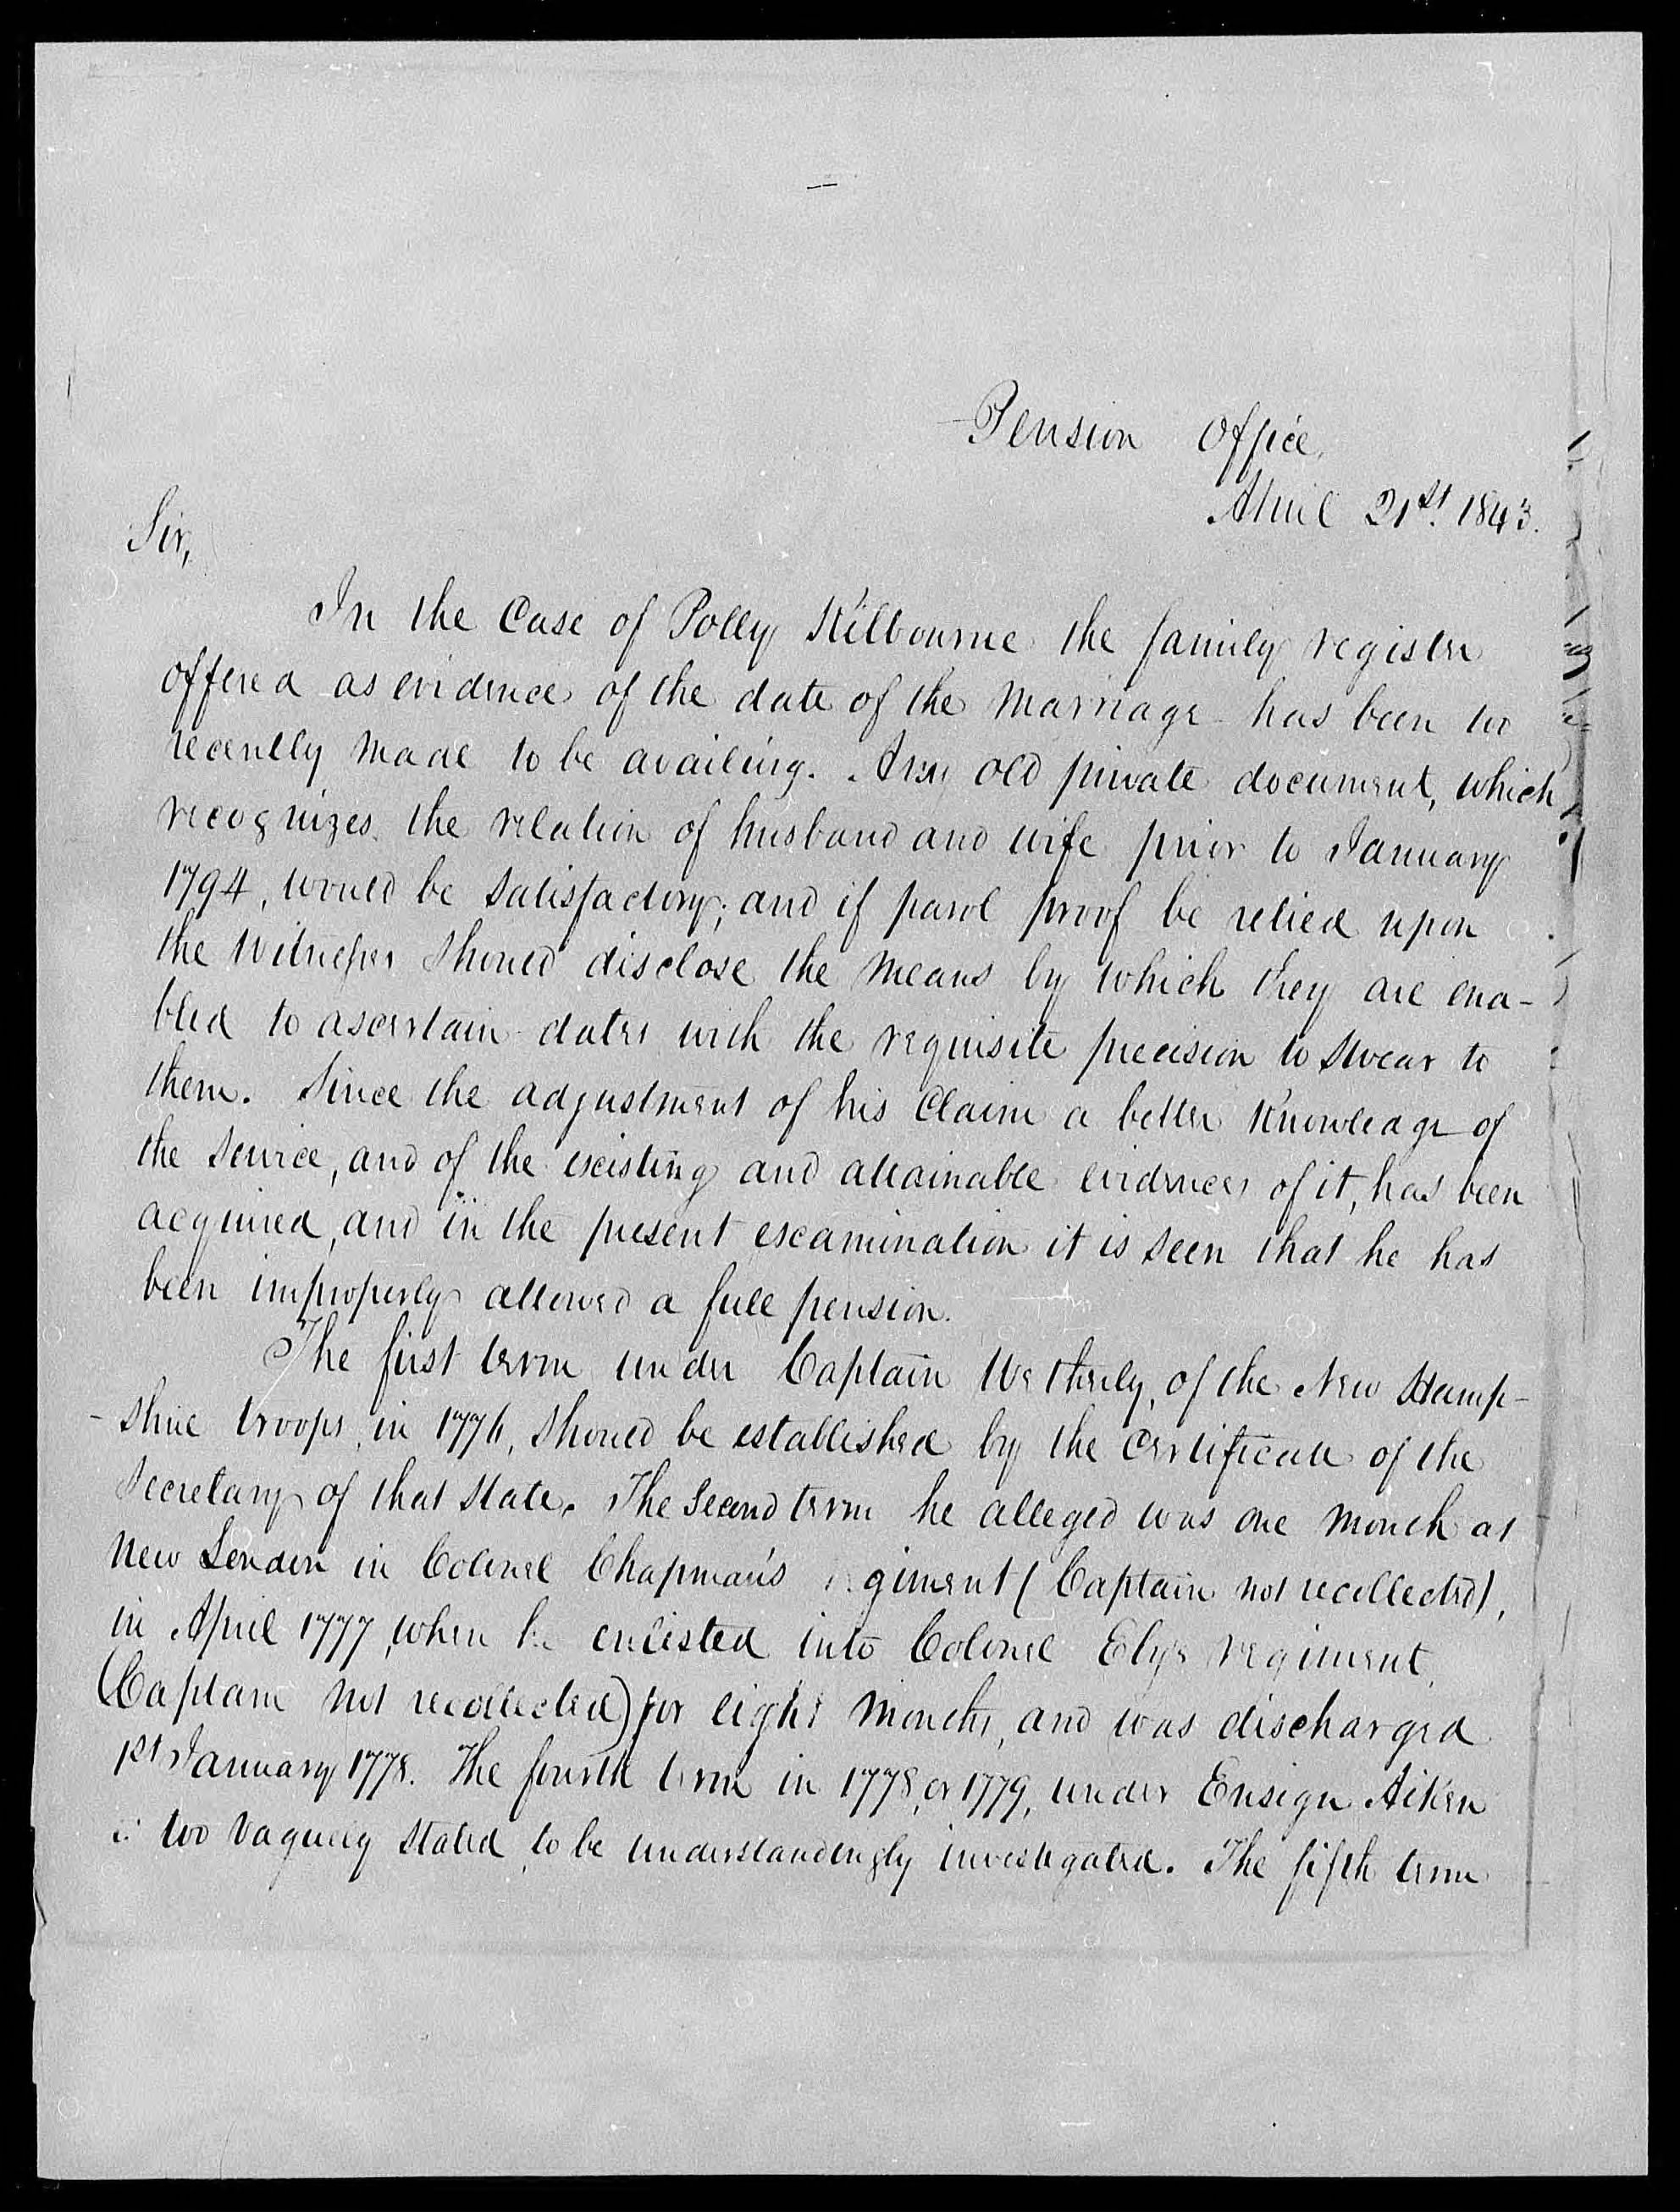 Pension Office,
April 21st. 1843.
Sir,
In the Case of Polly Kilbourne the family register
offered as evidence of the date of the marriage has been too
recently made to be availing. Any old private document, which
recognizes the relation of husband and wife prior to January
1794, would be satisfactory; and if parol proof be relied upon
the witnesses should disclose the means by which they are ena-
bled to ascertain dates with the requisite precision to swear to
them. Since the adjustment of his Claim a better Knowledge of
the service, and of the existing and attainable evidences of it, has been
acquired, and in the present examination it is seen that he has
been improperly allowed a full pension.
The first term under Captain Wetherly, of the New Hamp-
-shire troops, in 1776, should be established by the Certificate of the
Secretary of that State. The Second term he alleged was one month at
New London in Colonel Chapman's giment (Captain not recollected),
in April 1777, when he enlisted into Colonel Elys regiment,
(Captain not recollected) for eight months, and was discharged
1st January 1778. The fourth term in 1778, or 1779, under Ensign Aiken
too vaguely stated to be understandingly investigated. The fifth term